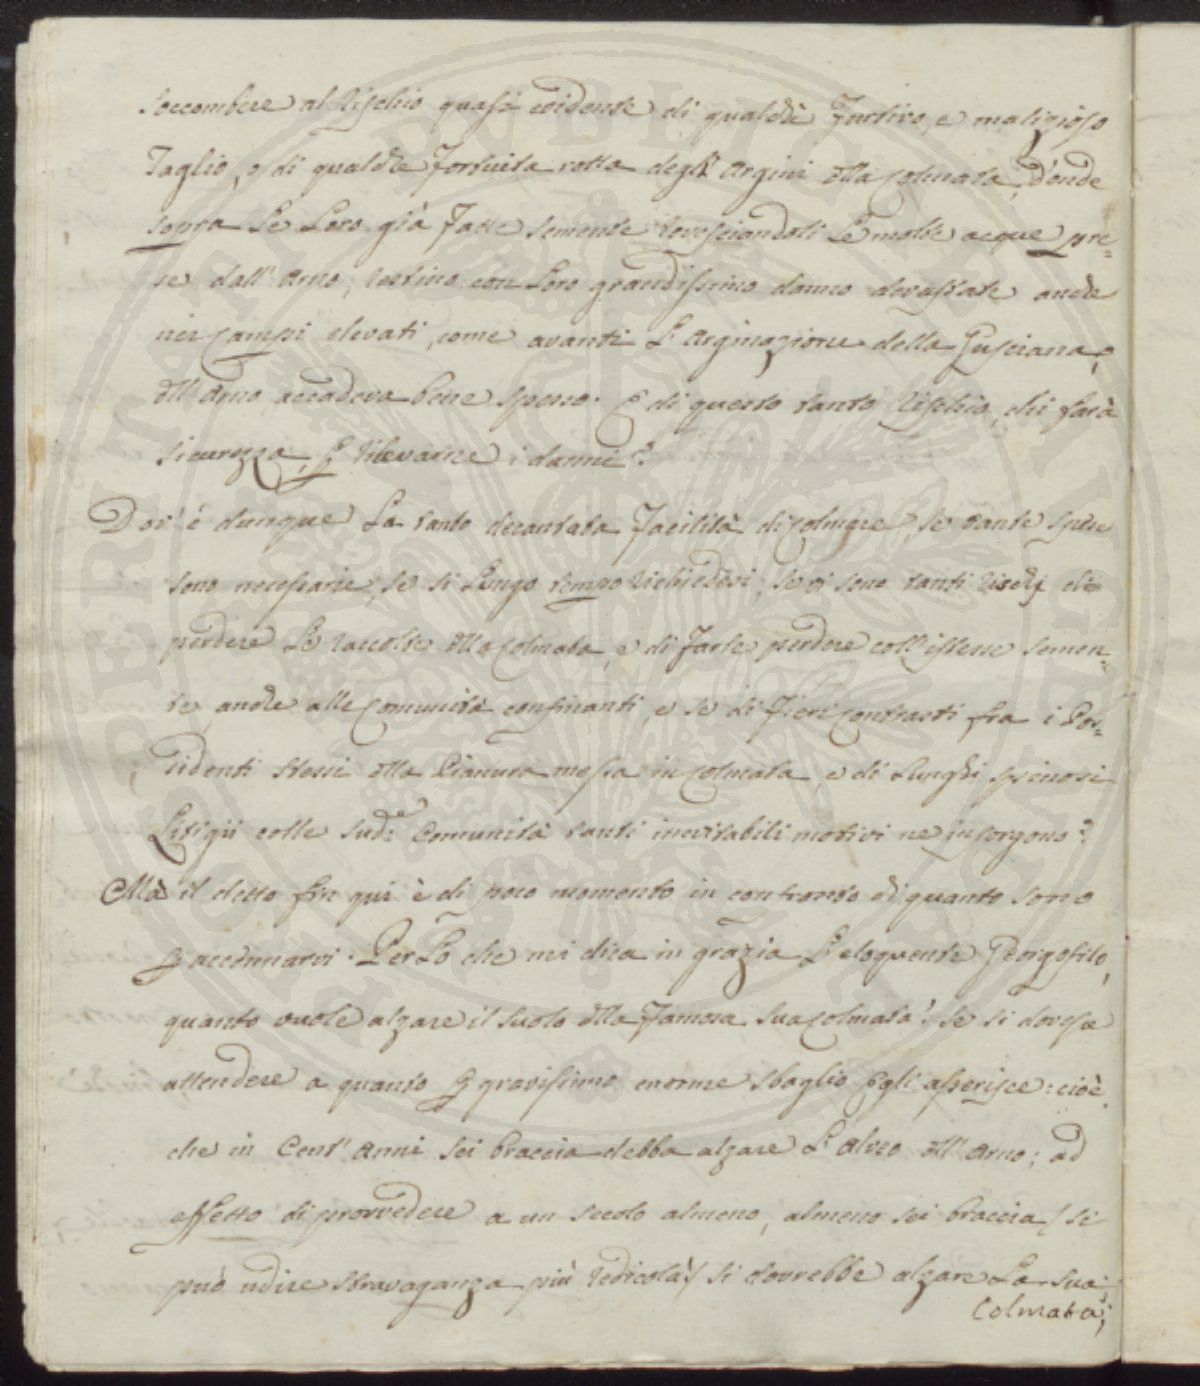 soccombere al Rischio quasi evidente di qualche Furtivo, e malizioso
Taglio, o di qualche Fortuita rotta degli Argini dlla Colmata, d'onde
sopra Le Loro già Fatte semente rovesciandosi Le molte acque pre-
se dall'Arno, restino con Loro grandissimo danno devastate anche
nei Campi elevati, come avanti L'Arginazione della Gusciana, e
dll'Arno accadeva bene spesso. E di questo tanto Rischio, chi farà
sicurezza, p rilevarne i danni?
Dov'è dunque La tanto decantata Facilità di Colmare, se tante spese
sono necessarie, se si Lungo tempo richiedesi, se vi sono tanti Rischj di
perdere Le raccolte dlla Colmata, e di Farle perdere coll'istesse semen-
te, anche alle Comunità confinanti, e se di Fieri Contrasti fra i Pos-
sidenti stessi dlla Pianura messa in Colmata, e di Lunghi spinosi
Litigii colle sudte Comunità tanti inevitabili motivi ne insorgono?
Mà il detto fin qui è di poco momento in confronto di quanto sono
p accennarvi. Per Lo che mi dica in grazia L'eloquente Georgofilo,
quanto vuole alzare il suolo dlla Famosa sua Colmata? Se si dovesse
attendere a quanto p gravissimo enorme sbaglio Egli asserisce: cioè
che in Cent'Anni sei braccia debba alzare L'Alveo dll'Arno; ad
effetto di provvedere a un secolo almeno, almeno sei braccia / si
può udire stravaganza più redicola! / si dovrebbe alzare La sua
Colmata;